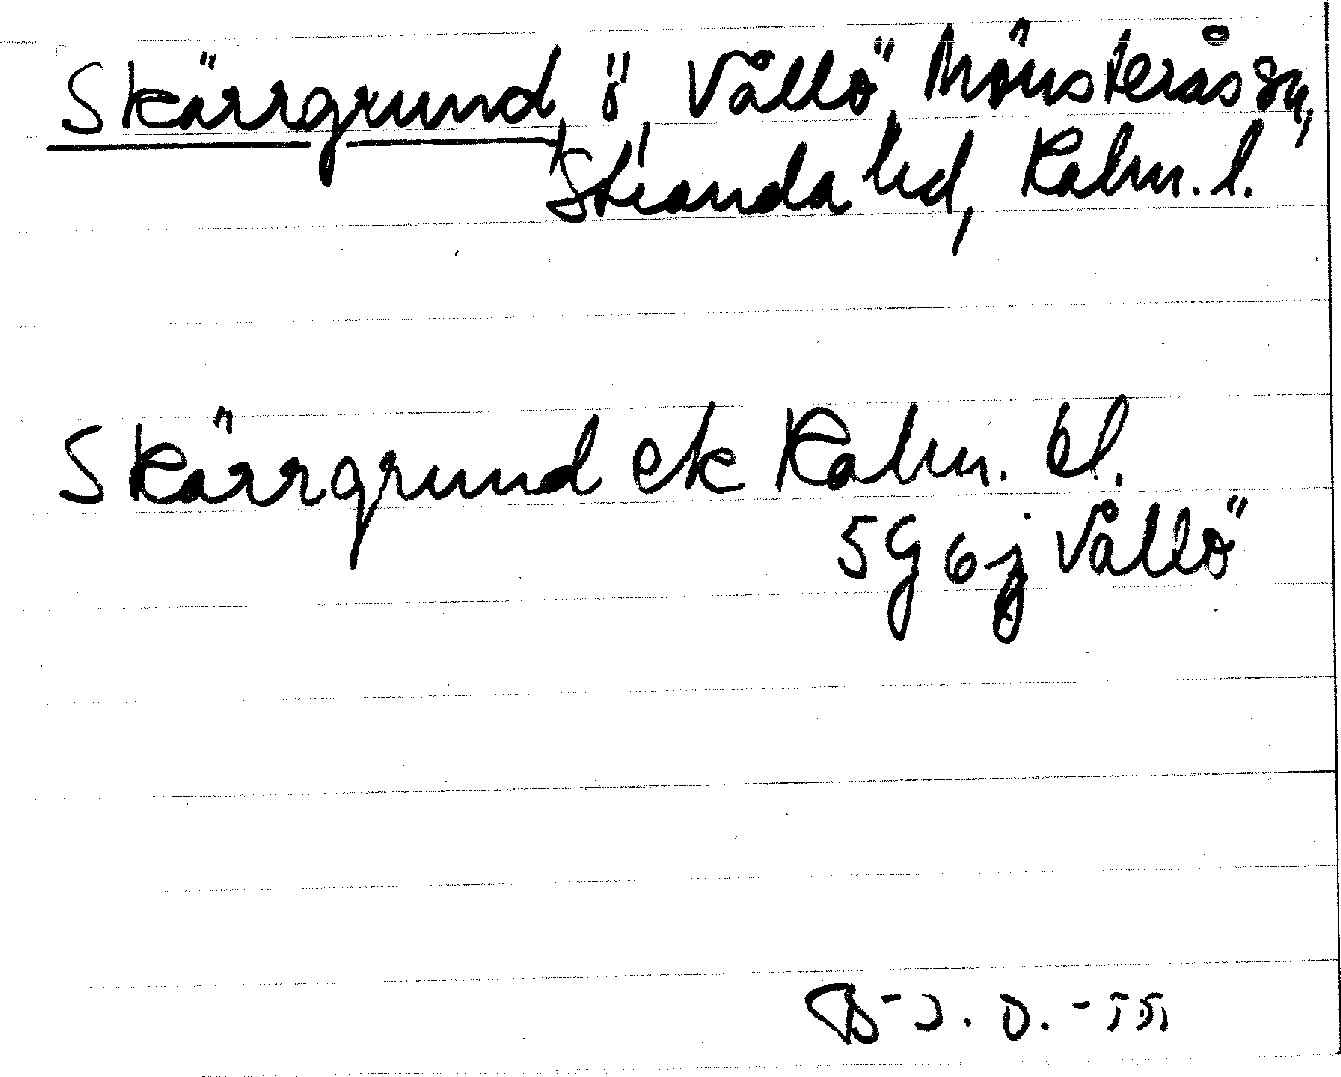 Skärrgrund, ö, Vållö, Mönsterås sn,
Stranda hd, Kalm. l.
Skärrgrund ek Kalm. bl.
5G6j Vållö
B-J. D. -55